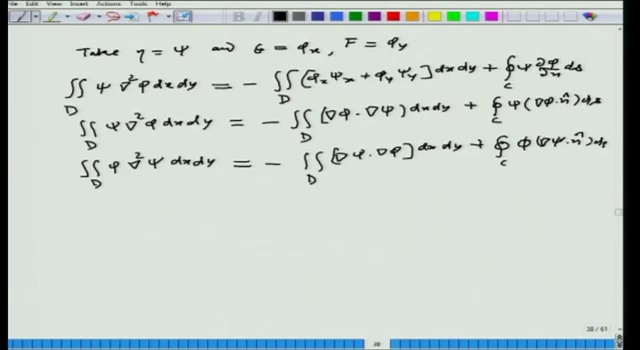 File View Insert Actions Tools Help
Take η = Ψ and G = φ_x, F = φ_y
∬_D Ψ ∇²φ dxdy = - ∬_D [φ_x Ψ_x + φ_y Ψ_y] dxdy + ∮_C Ψ ∂φ/∂n ds
∬_D Ψ ∇²φ dxdy = - ∬_D (∇φ · ∇Ψ) dxdy + ∮_C Ψ (∇φ · n̂) ds
∬_D φ ∇²Ψ dxdy = - ∬_D [∇Ψ · ∇φ] dxdy + ∮_C φ (∇Ψ · n̂) ds
38 / 61
38